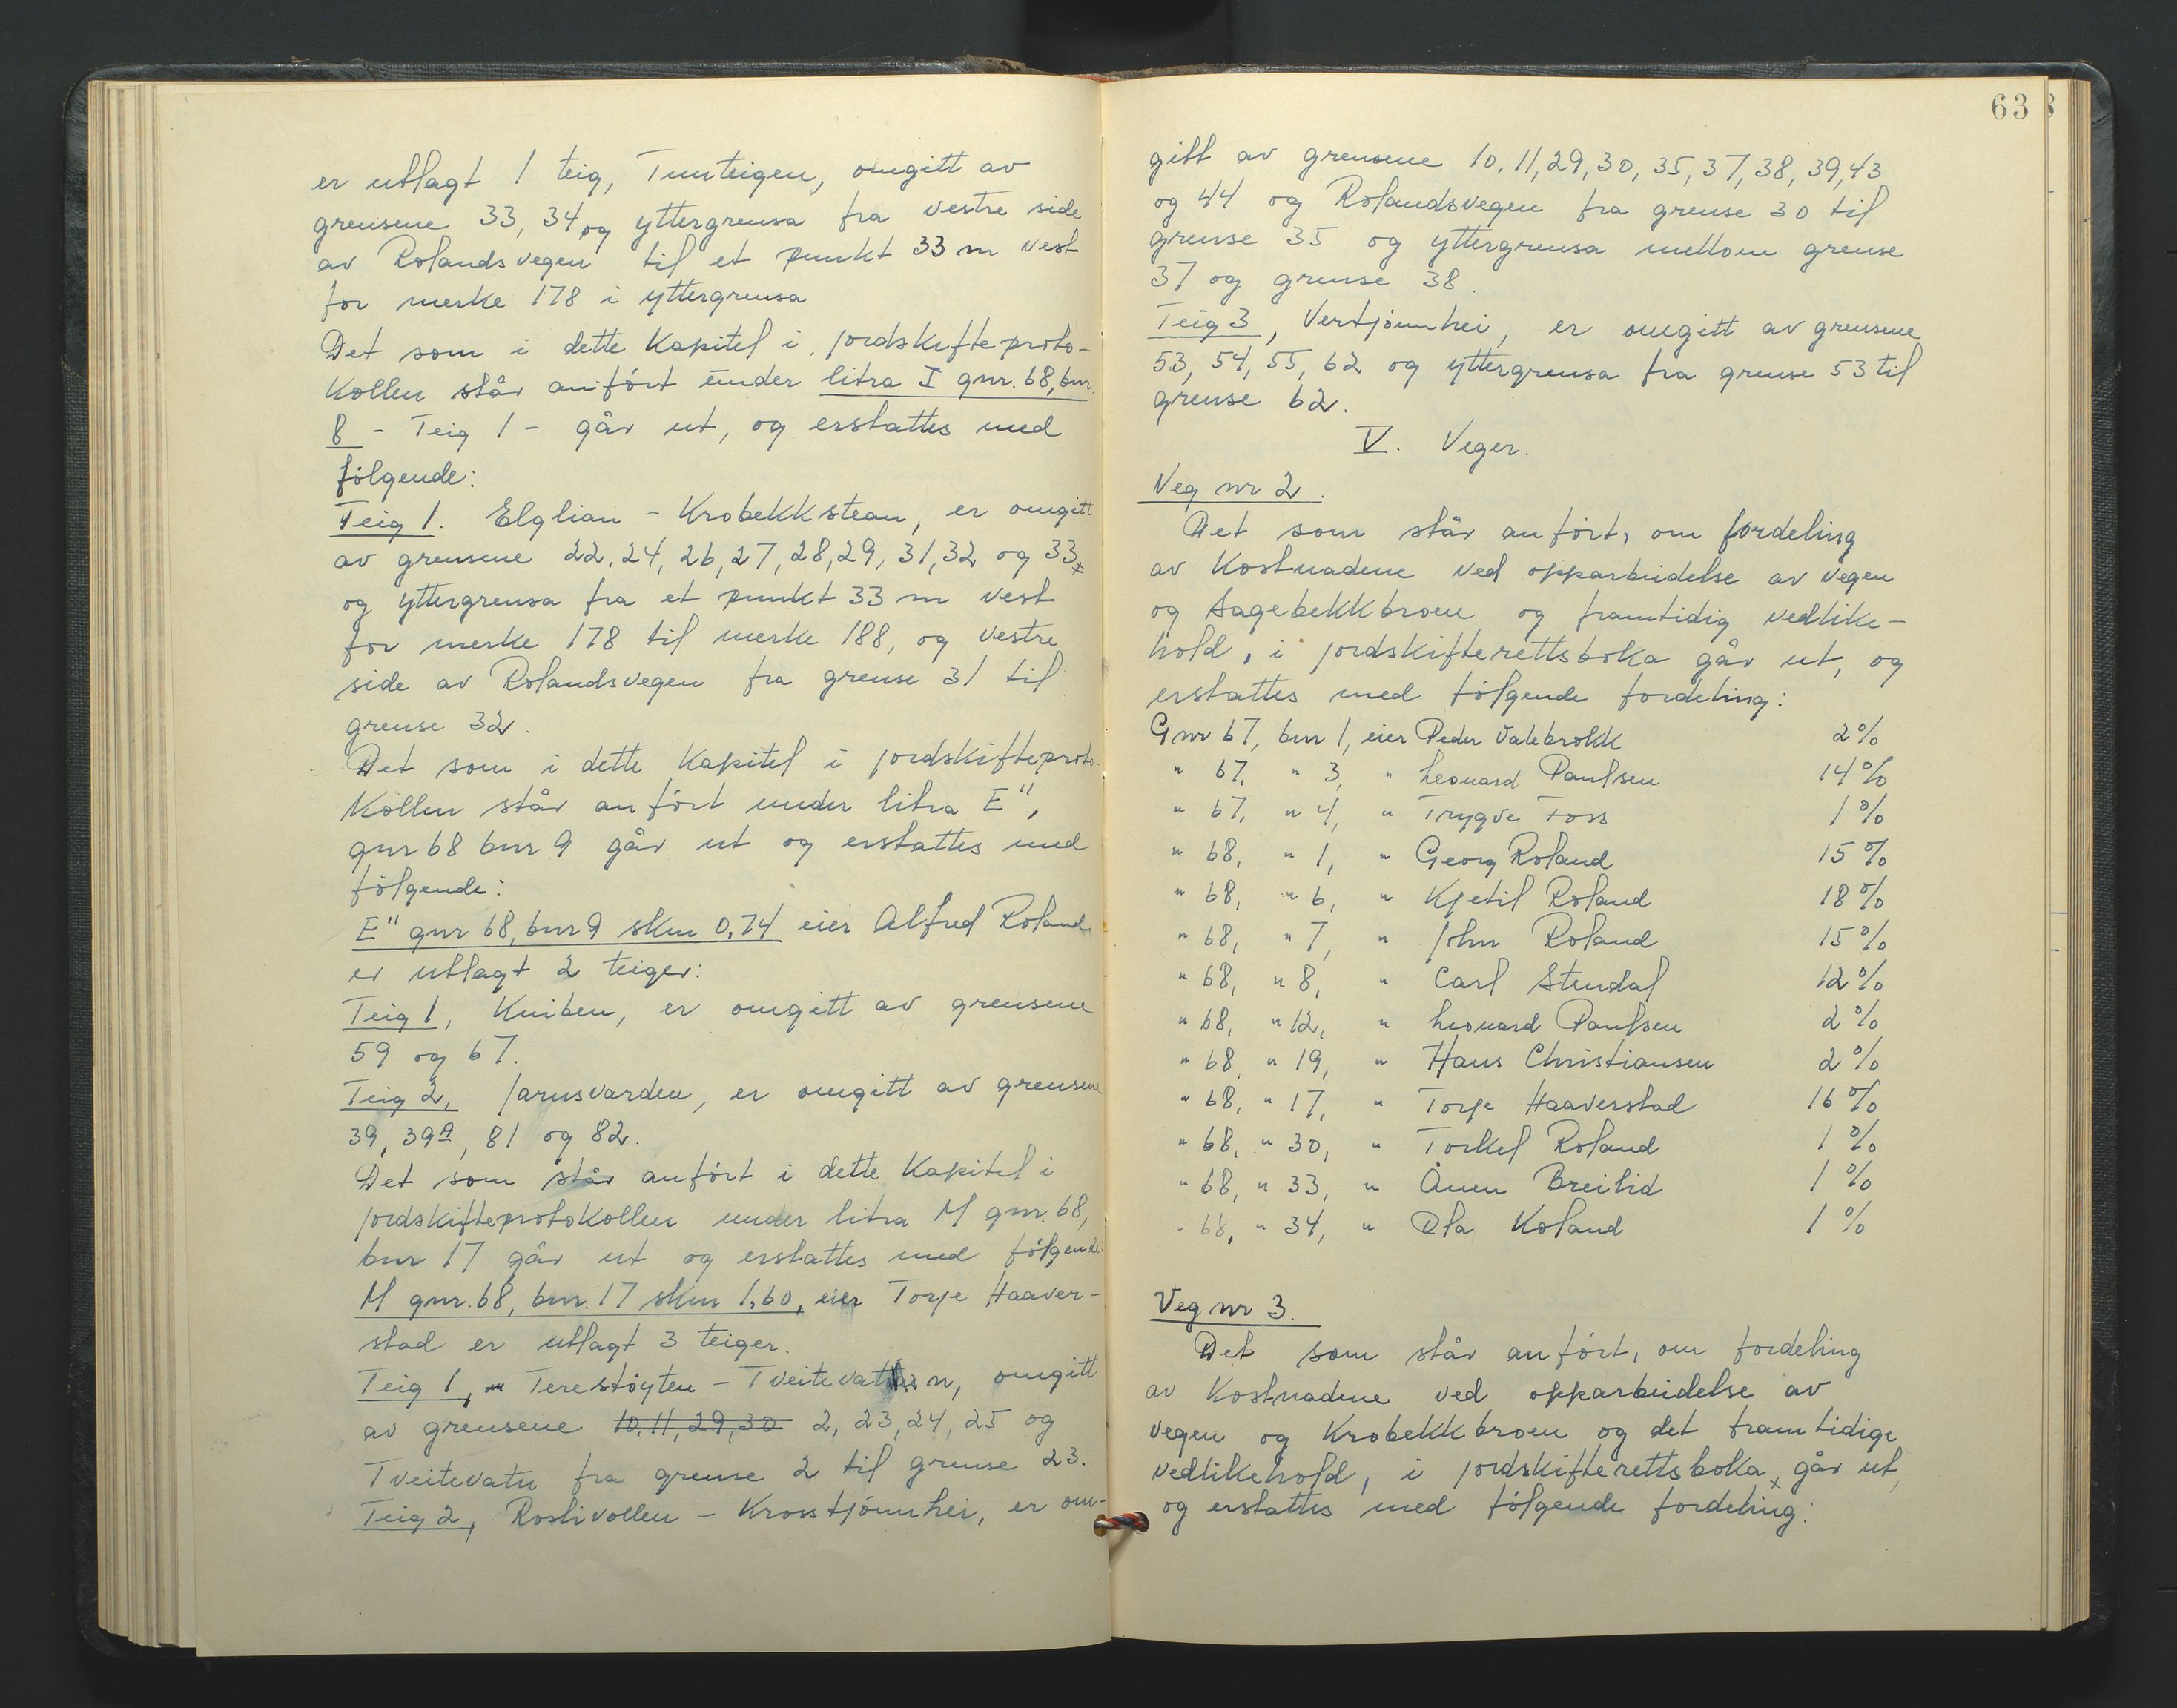 er utlagt 1 teig, Tunteigen, omgitt av
grensene 33, 34 og yttergrensa fra vestre side
av Rolandsvegen til et punkt 33 m vest
for merke 178 i yttergrensa
Det som i dette Kapitel i jordskifteproto-
kollen står anført under litra I gnr. 68, bnr.
8 - Teig 1 - går ut, og erstattes med
følgende:
Teig 1. Elglian - Krobekkstean, er omgitt
av grensene 22, 24, 26, 27, 28, 29, 31, 32 og 33
og yttergrensa fra et punkt 33 m vest
for merke 178 til merke 188, og vestre
side av Rolandsvegen fra grense 31 til
grense 32.
Det som i dette Kapitel i jordskifteproto-
kollen står anført under litra E",
gnr 68 bnr 9 går ut og erstattes med
følgende:
E" gnr 68, bnr 9 skm 0,74 eier Alfred Roland
er utlagt 2 teiger:
Teig 1, Kniben, er omgitt av grensene
59 og 67.
Teig 2, Jarusvarden, er omgitt av grensene
39, 39A, 81 og 82.
Det som står anført i dette Kapitel i
jordskifteprotokollen under litra M gnr. 68,
bnr 17 går ut og erstattes med følgende
M gnr. 68, bnr. 17 skm 1,60, eier Torje Haaver-
stad er utlagt 3 teiger.
Teig 1, Terestøyten - Tveitevatn, omgitt
av grensene 10, 11, 29, 30 2, 23, 24, 25 og
Tveitevatn fra grense 2 til grense 23.
Teig 2, Roslivollen - Krosstjønnhei, er om-
63
gitt av grensene 10, 11, 29, 30, 35, 37, 38, 39, 43
og 44 og Rolandsvegen fra grense 30 til
grense 35 og yttergrensa mellom grense
37 og grense 38.
Teig 3, Vertjønnhei, er omgitt av grensene
53, 54, 55, 62 og yttergrensa fra grense 53 til
grense 62.
V. Veger.
Veg nr 2.
Det som står anført, om fordeling
av kostnadene ved opparbeidelse av vegen
og Sagebekkbroen og framtidig vedlike-
hold, i jordskifterettsboka går ut, og
erstattes med følgende fordeling:
Gnr 67, bnr 1, eier Peder Valebrokk 2%
" 67, " 3, " Leonard Paulsen 14%
" 67, " 4, " Trygve Foss 1%
" 68, " 1, " Georg Roland 15%
" 68, " 6, " Kjetil Roland 18%
" 68, " 7, " John Roland 15%
" 68, " 8, " Carl Stendal 12%
" 68, " 12, " Leonard Paulsen 2%
" 68, " 19, " Hans Christiansen 2%
" 68, " 17, " Torje Haaverstad 16%
" 68, " 30, " Torkel Roland 1%
" 68, " 33, " Ånen Breilid 1%
" 68, " 34, " Ola Roland 1%
Veg nr 3.
Det som står anført, om fordeling
av kostnadene ved opparbeidelse av
vegen og Krobekkbroen og det framtidige
vedlikehold, i jordskifterettsboka, går ut,
og erstattes med følgende fordeling: